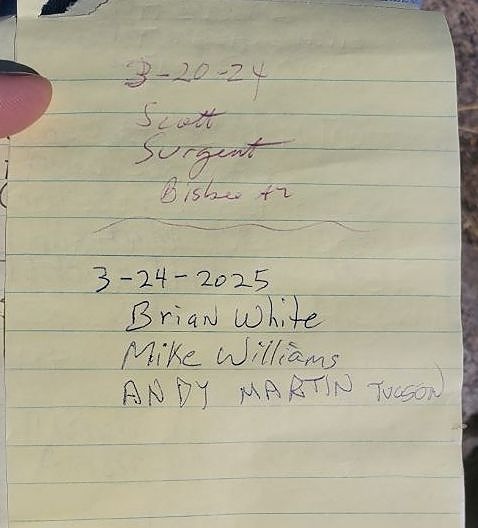 3-20-24
Scott
Surgent
Bisbee AZ
3-24-2025
Brian White
Mike Williams
ANDY MARTIN TUCSON